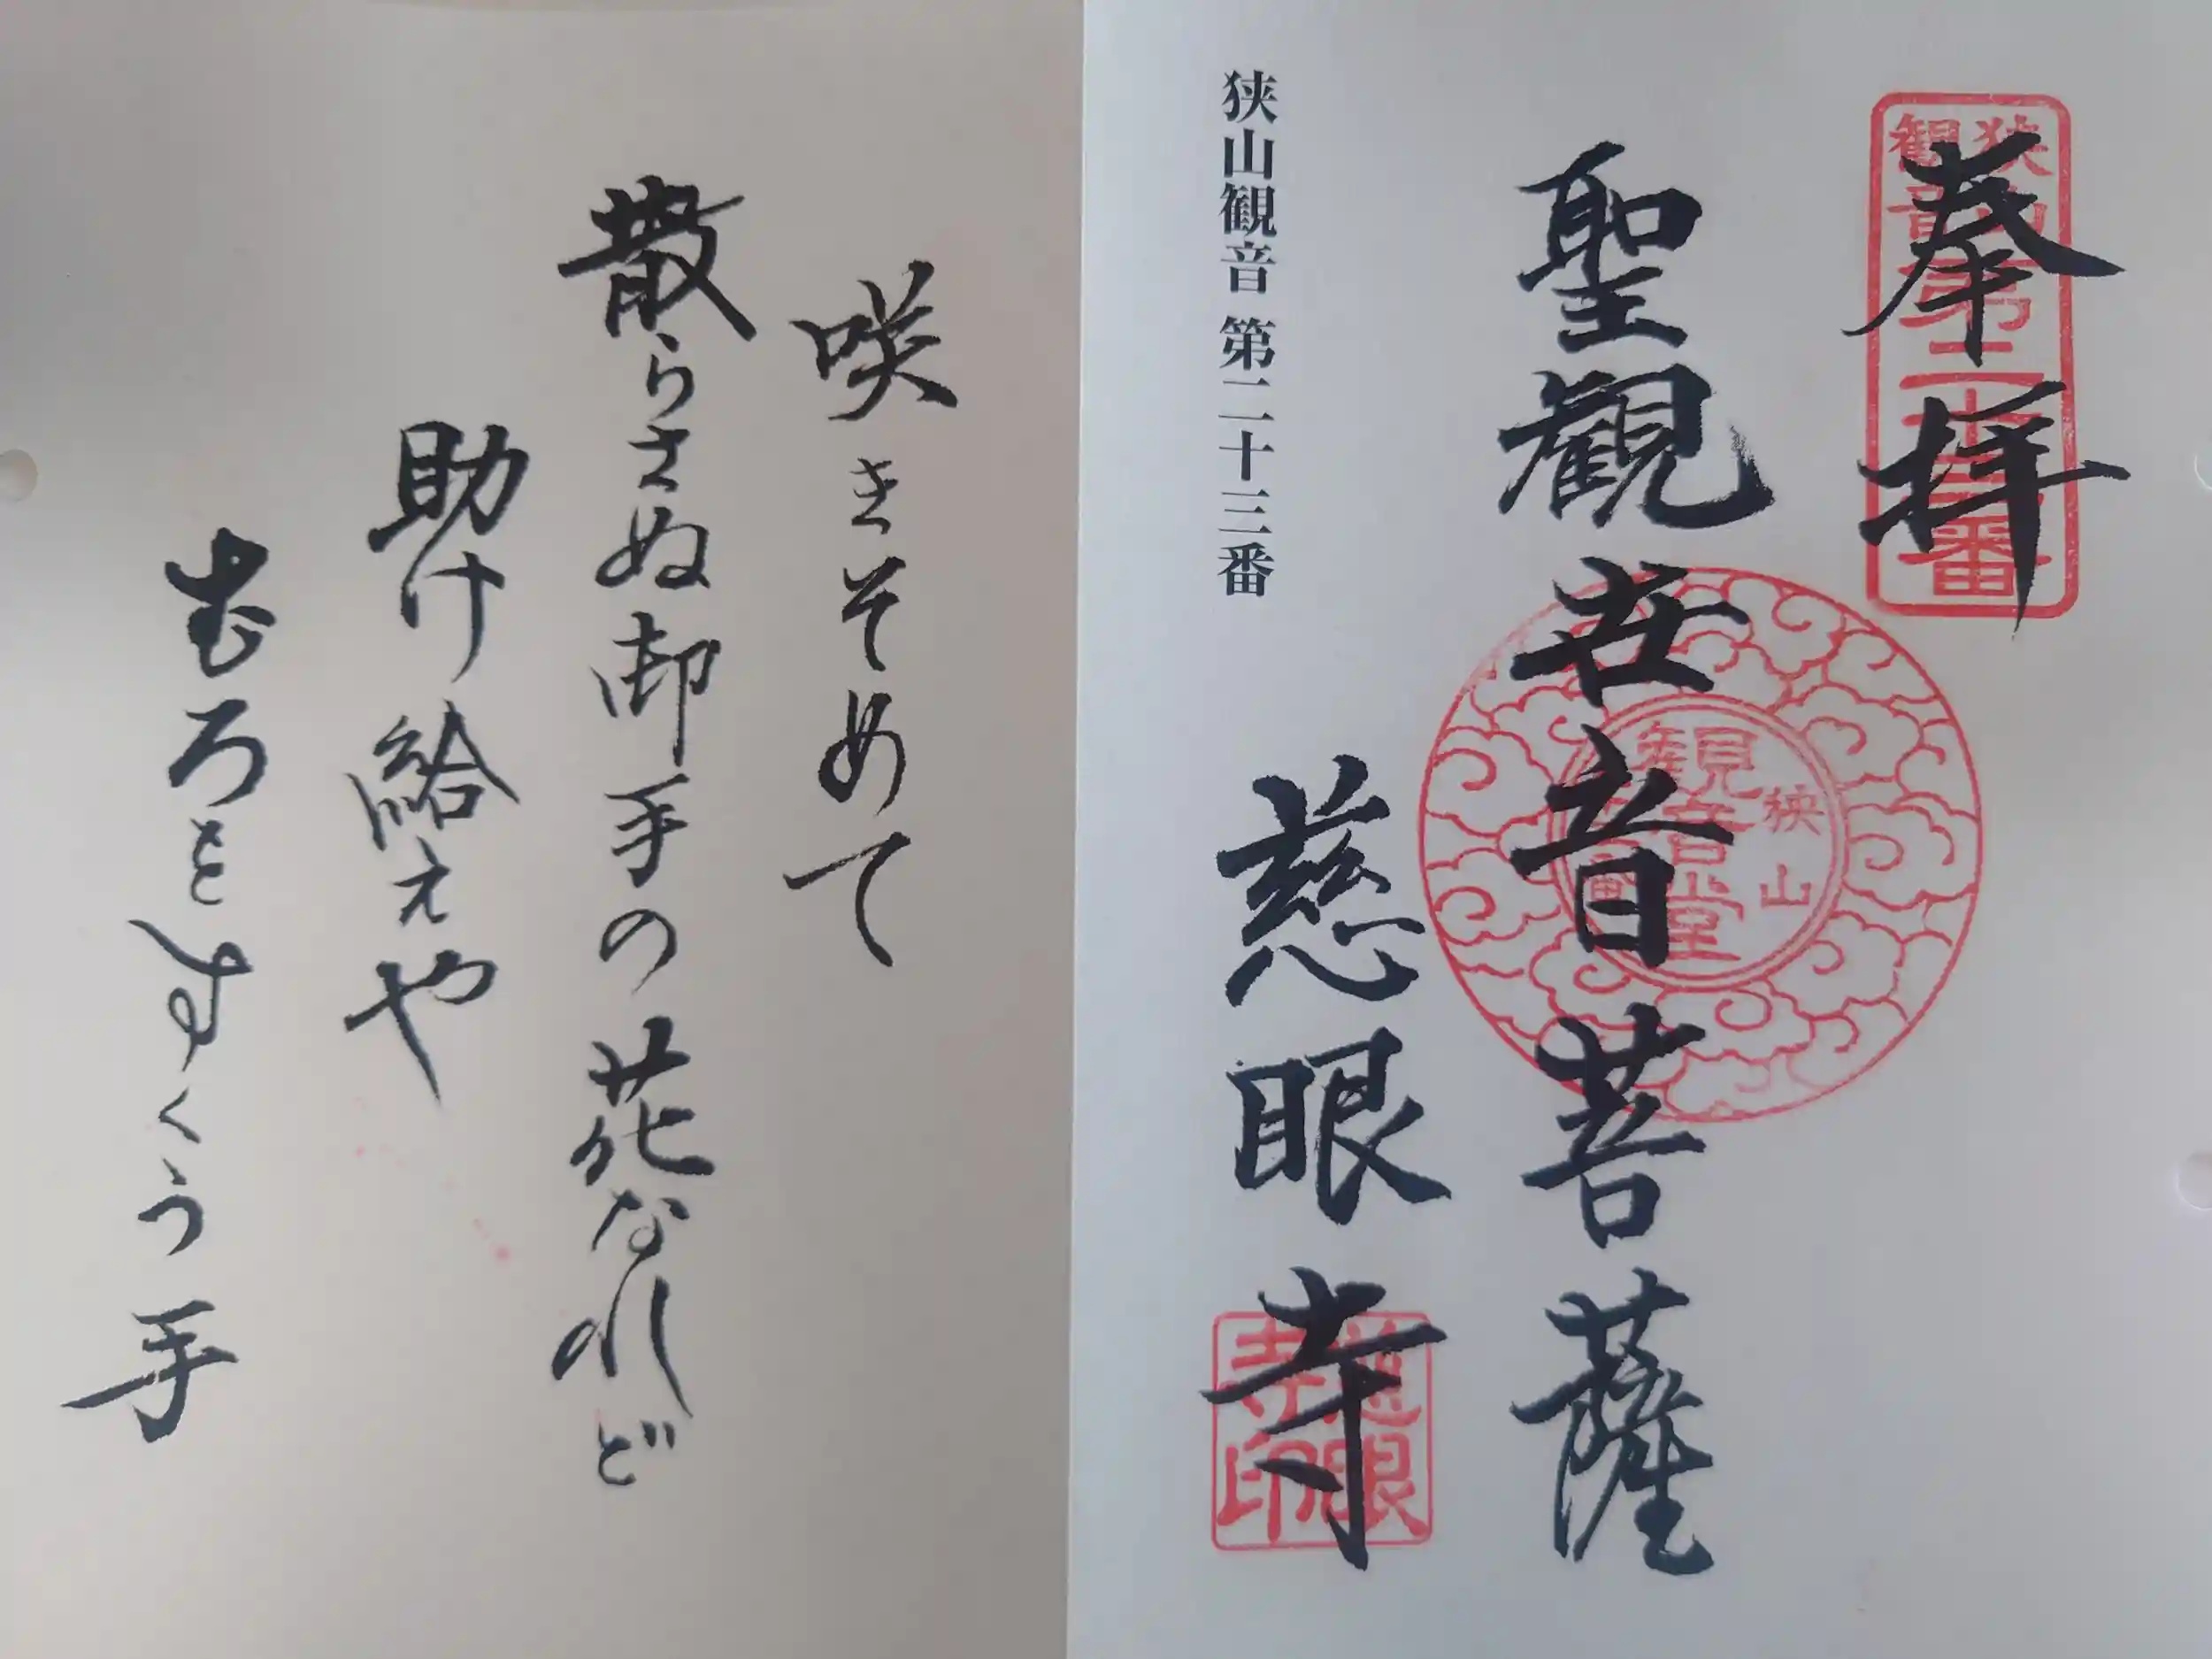 奉拝
狭山
観音第二十三番
聖觀世音菩薩
狭山
観音堂
狭山観音 第二十三番
慈眼寺
慈眼
寺印
咲きそめて
散らさぬ御手の花なれど
助け給えや
もろをすくう手